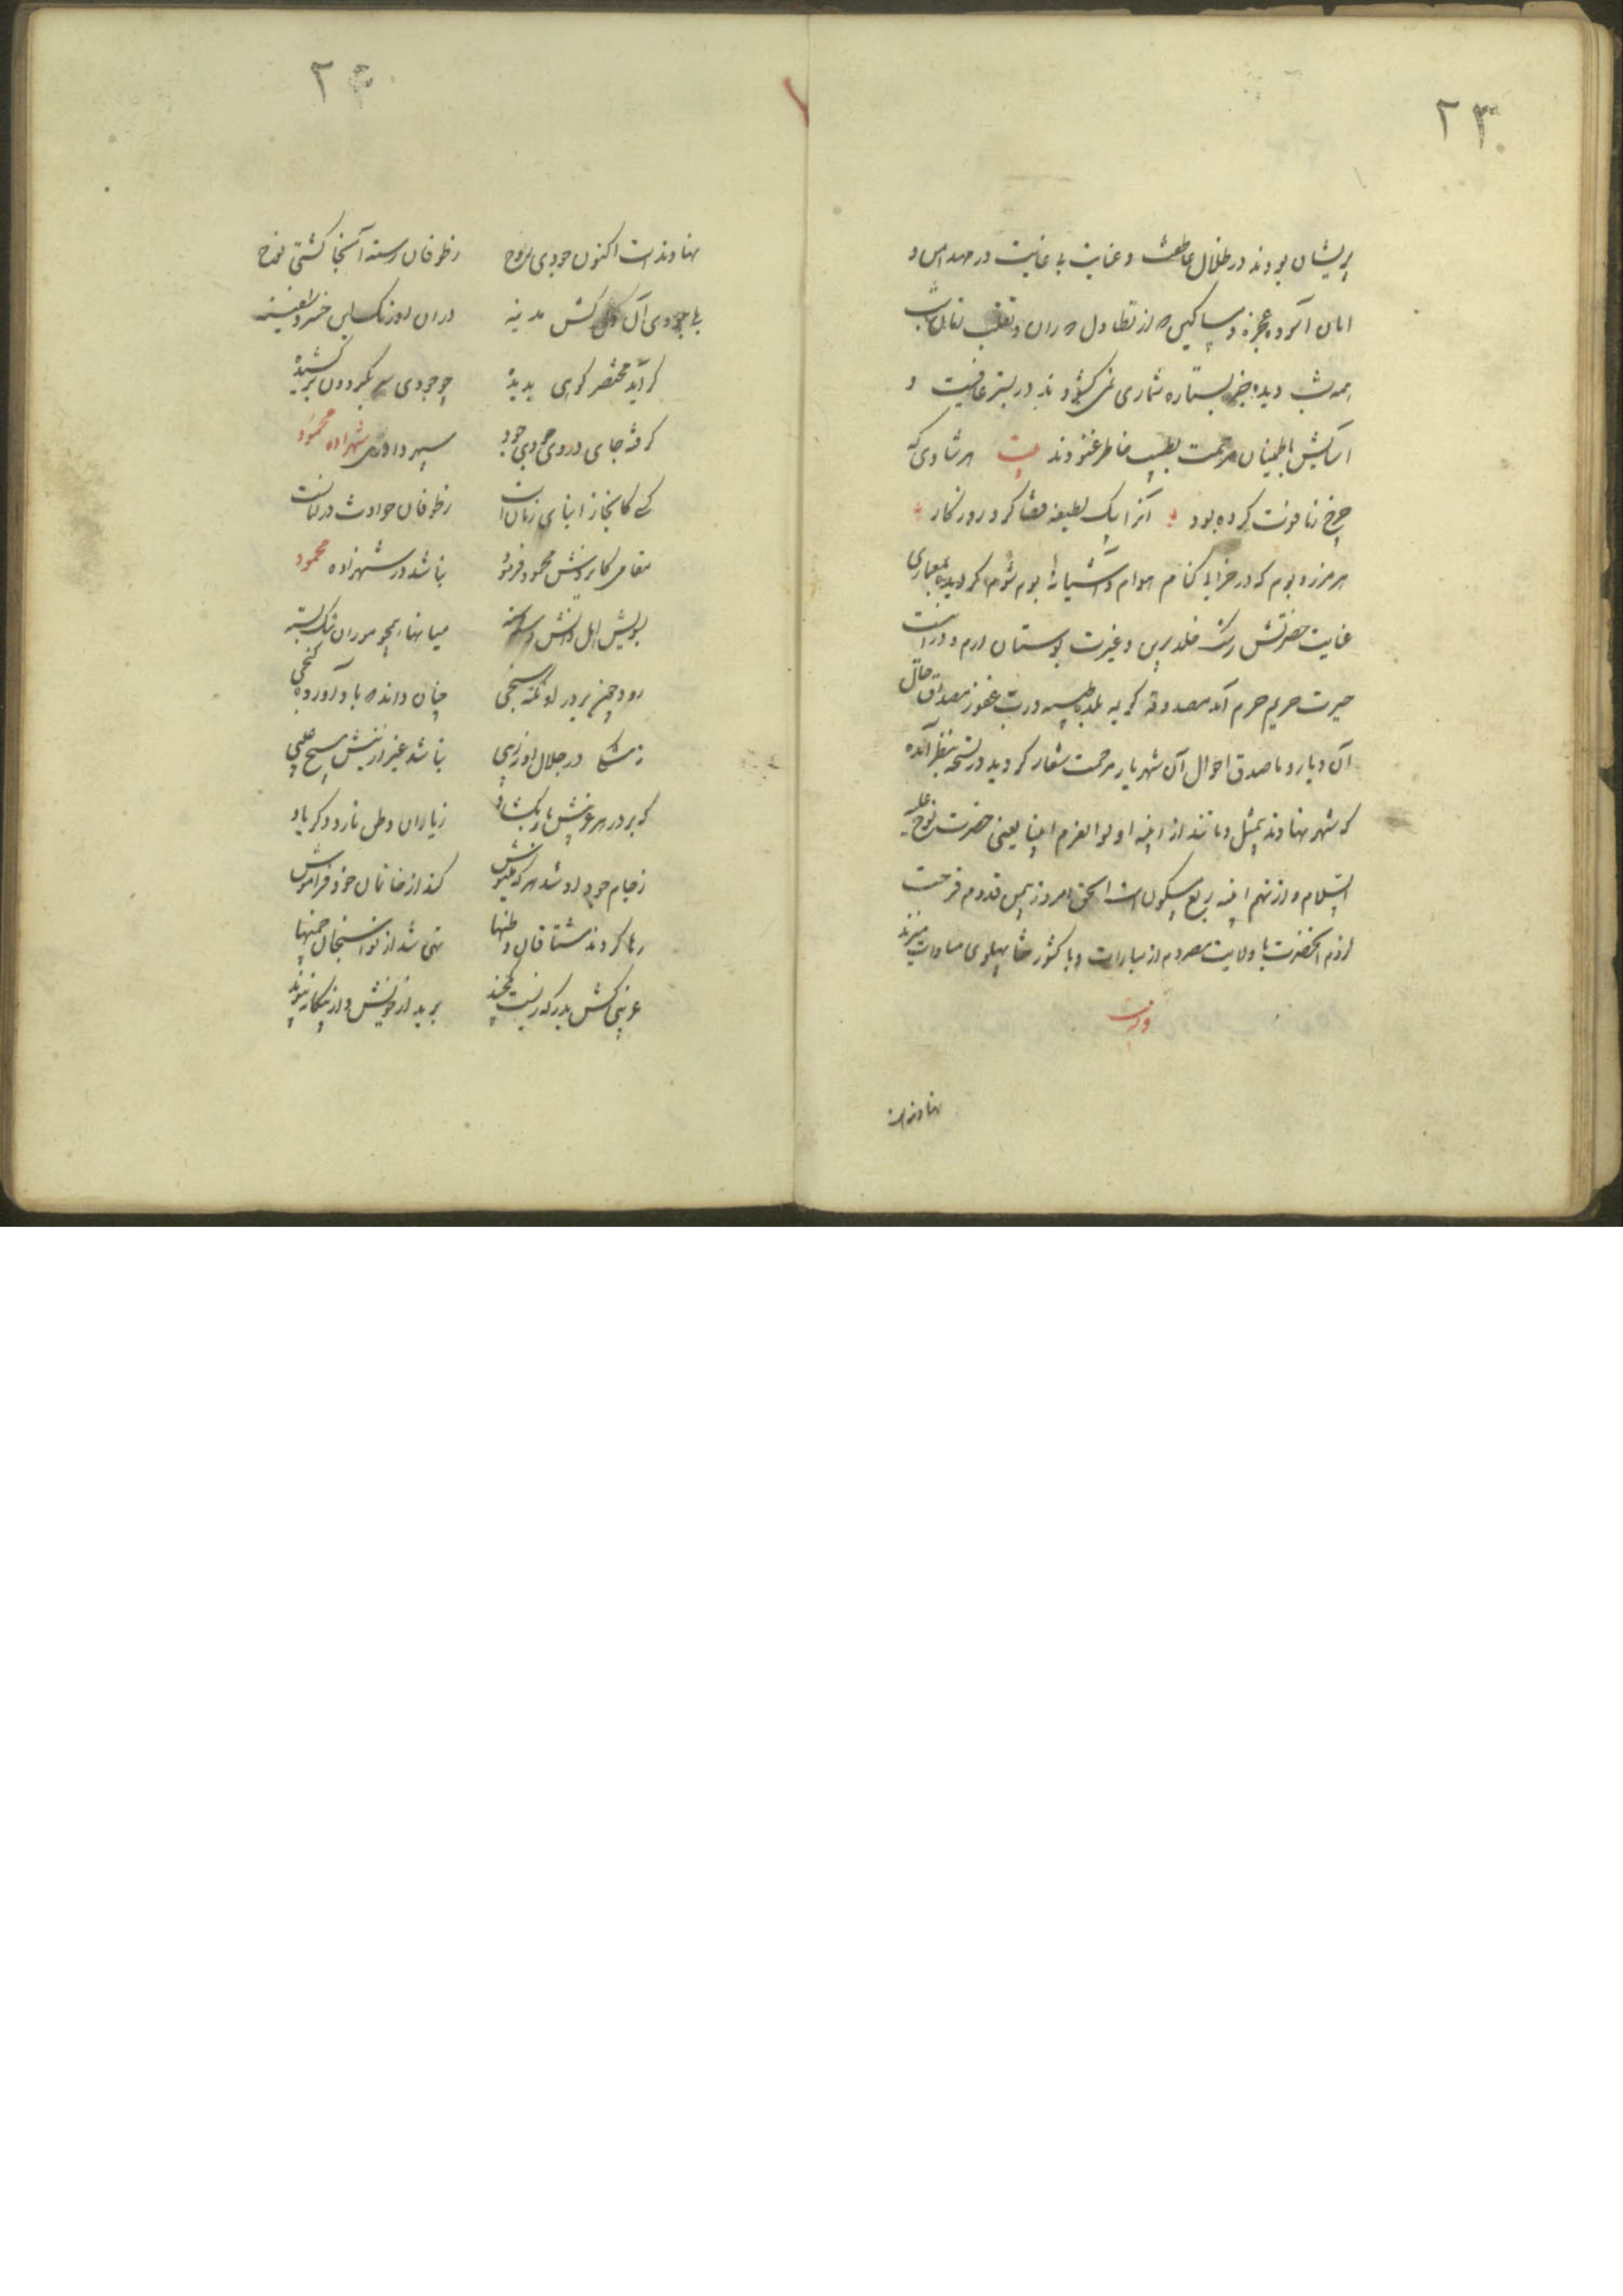 ۲۳
پریشان بودند در ظلال عاطفت و عنایت بی غایت در مهد امن و
امان آسوده عجزه و مساکین که از تطاول
همه شب دیده بجز بستاره شماری نمی گشودند در بستر عافیت و
آسایش باطمینان مرحمت بطیب خاطر غنودند بیت هر شادی که
چرخ زما فوت کرده بود آنرا بیک لطیفه قضا کرد روزگار
هر مرز و بوم که در خرابی کنام هوام و آشیانه بوم شوم گردیده بمعماری
عنایت حضرتش رشک خلد برین و غیرت بوستان ارم و
حیرت حریم حرم آمد مصدوقه کریمه بلدة طیبه و رب غفور مصداق حال
آن دیار و ما صدق احوال آن شهریار مرحمت شعار گردید در نسخه بنظر آمده
که شهر نهاوند بمثل و مانند از ابنیه اولوالعزم انبیا یعنی حضرت نوح علیه
السلام و از نهم ابنیه ربع مسکون است الحق امروز بیمن قدوم فرحت
لزوم آنحضرت با ولایت مصر دم از مبارات و با کشور ختا پهلوی مساوات میزند
نهاوند است
۲۴
نهاوند است اکنون جودی نوح ز طوفان رسته آنجا کشتی نوح
با جودی آل مدینه در آن اورنک این خسرو سفینه
گر آید مختصر کوهی پدیده چو جودی سر بگردون بر کشیده
گرفته جای در وی جودی جود سپهر داوری شهزاده محمود
کسی کانجا ز ابنای زمان است ز طوفان حوادث در امانست
مقامی کایردش محمود فرمود نباشد در شهزاده محمود
بسویش اهل دانش دسته دسته میانها همچو موران تنگ بسته
رود چون بر در او نکته سنجی چنان داند که باد آورده گنجی
ز مشکا در جلال او زهی نباشد غیر ازینش هیچ عیبی
که بر در هر غریبش بار بگشاد ز یاران وطن نارد دگر یاد
ز جام جود او شد هر که مینوش کند از خانمان خود فراموش
رها کردند مشتاقان وطنها تهی شد از نوا سنجان چمنها
غریبی کش بدرگه زیست یکچند برید از خویش و از بیگانه پیوند